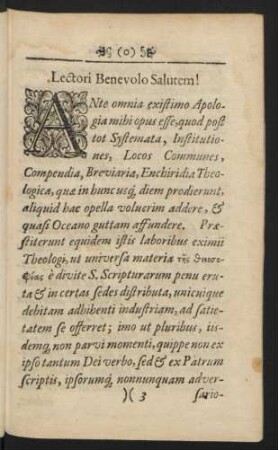 (o)
Lectori Benevolo Salutem!
ANte omnia existimo Apolo-
gia mihi opus esse, quod post
tot Systemata, Institutio-
nes, Locos Communes,
Compendia, Breviaria, Enchiridia Theo-
logica, quæ in hunc usq; diem prodierunt,
aliquid hac opella voluerim addere, &
quasi Oceano guttam affundere. Præ-
stiterunt equidem istis laboribus eximii
Theologi, ut universa materia τῆς θεοσο-
φίας è divite S. Scripturarum penu eru-
ta & in certas sedes distributa, unicuique
debitam adhibenti industriam, ad satie-
tatem se offerret; imo ut pluribus, iis-
demq; non parvi momenti, quippe non ex
ipso tantum Dei verbo, sed & ex Patrum
scriptis, ipsorumq; nonnunquam adver-
)( 3 sario-